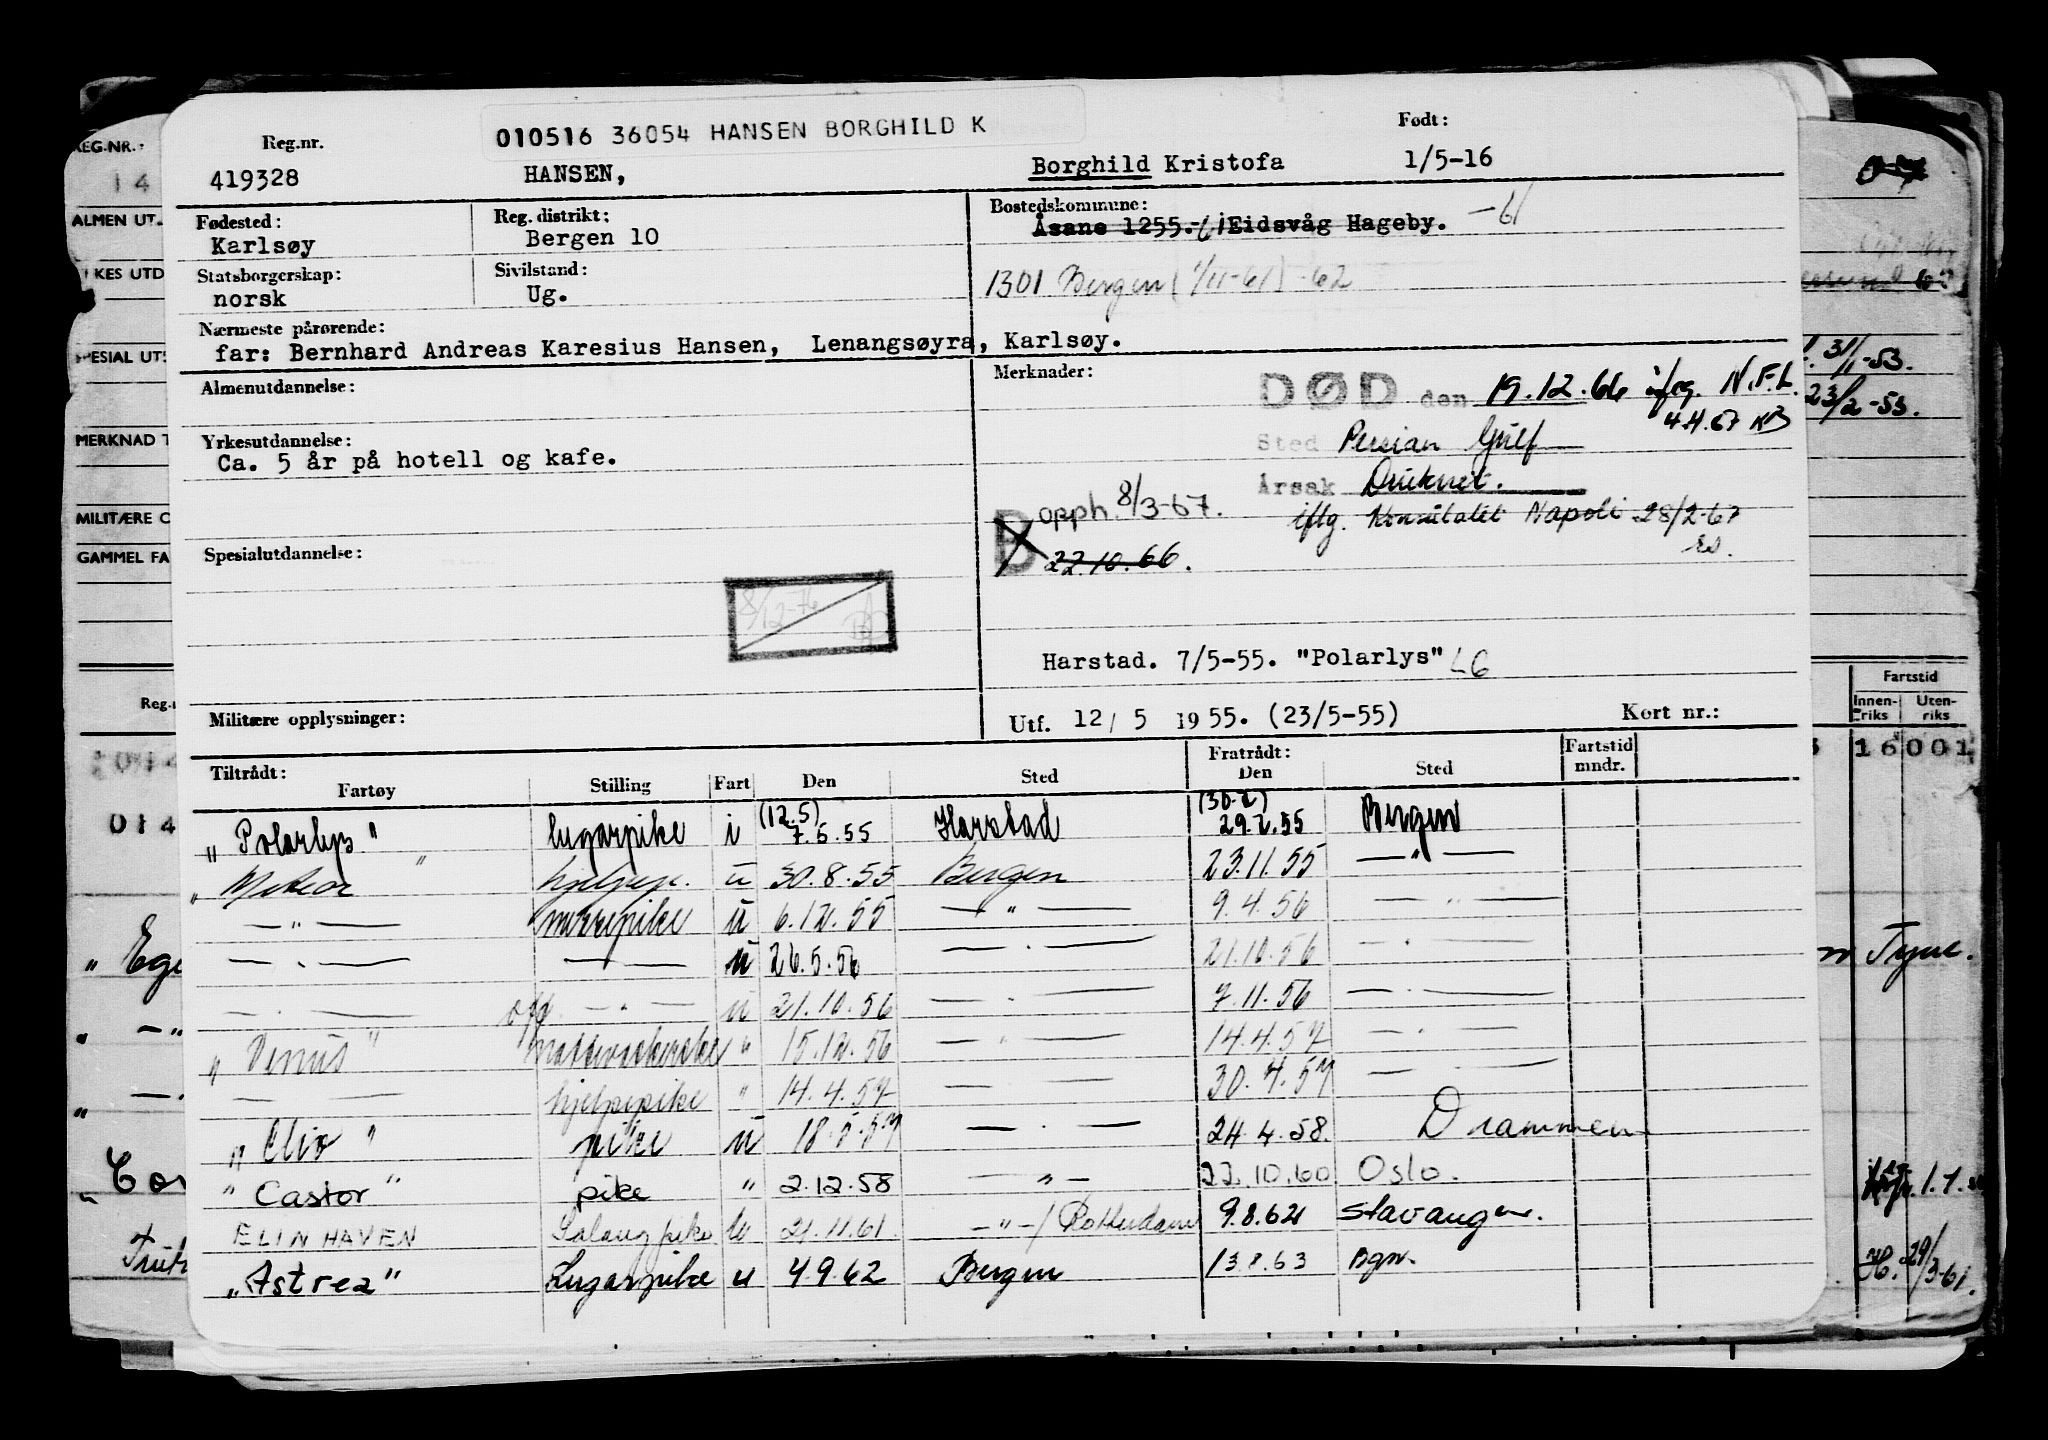 010516 36054 HANSEN BORGHILD K
Reg.nr. Født:
419328 HANSEN, Borghild Kristofa 1/5-16
Fødested: Reg. distrikt: Bostedskommune:
Karlsøy Bergen 10 Åsane 1255.- Eidsvåg Hageby. -61
Statsborgerskap: Sivilstand:
norsk Ug. 1301 Bergen (1/11-61) -62
Nærmeste pårørende:
far: Bernhard Andreas Karesius Hansen, Lenangsøyra, Karlsøy.
Almenutdannelse: Merknader:
DØD den 19.12.66 iflg. N.F.L.
4.4.67 KB
Yrkesutdannelse: Sted Persian Gulf
Ca. 5 år på hotell og kafe.
Årsak Druknet.
B opph. 8/3-67. iflg. Konsulatet Napoli 28/2-67
22.10.66.
Spesialutdannelse:
8/12-76
Harstad. 7/5-55. "Polarlys" LG
Militære opplysninger: Utf. 12/5 1955. (23/5-55) Kort nr.:
Tiltrådt: Fratrådt: Fartstid
Fartøy Stilling Fart Den Sted Den Sted mndr.
(12.5) (30.7)
"Polarlys" lugarpike i 7.5.55 Harstad 29.7.55 Bergen
"Meteor" hjelpepi. u 30.8.55 Bergen 23.11.55 — " —
— " — messepike u 6.12.55 — " — 9.4.56 — " —
— " — — " — u 26.5.56 — " — 21.10.56 — " —
— " — — " — u 21.10.56 — " — 7.11.56 — " —
"Venus" " 15.12.56 — " — 14.4.57 — " —
— hjelpepike " 14.4.57 — 30.4.57 — " —
"Clio" pike u 18.5.57 — " — 24.4.58. Drammen
"Castor" pike " 2.12.58 — " — 22.10.60 Oslo.
ELIN HAVEN Salongpike u 21.11.61 — " —/Rotterdam 9.8.62 Stavanger.
"Astrea" Lugarpike u 4.9.62 Bergen 13.8.63 Bgn.
REG.NR.:
14
ALMEN UT
KES UTD
SPESIAL UTS
MERKNAD T
MILITÆRE O
GAMMEL FA
31/11-53.
23/2-53.
Fartstid
Innenriks Utenriks
16001
014
Tyne.
1.1.
29/3-61.